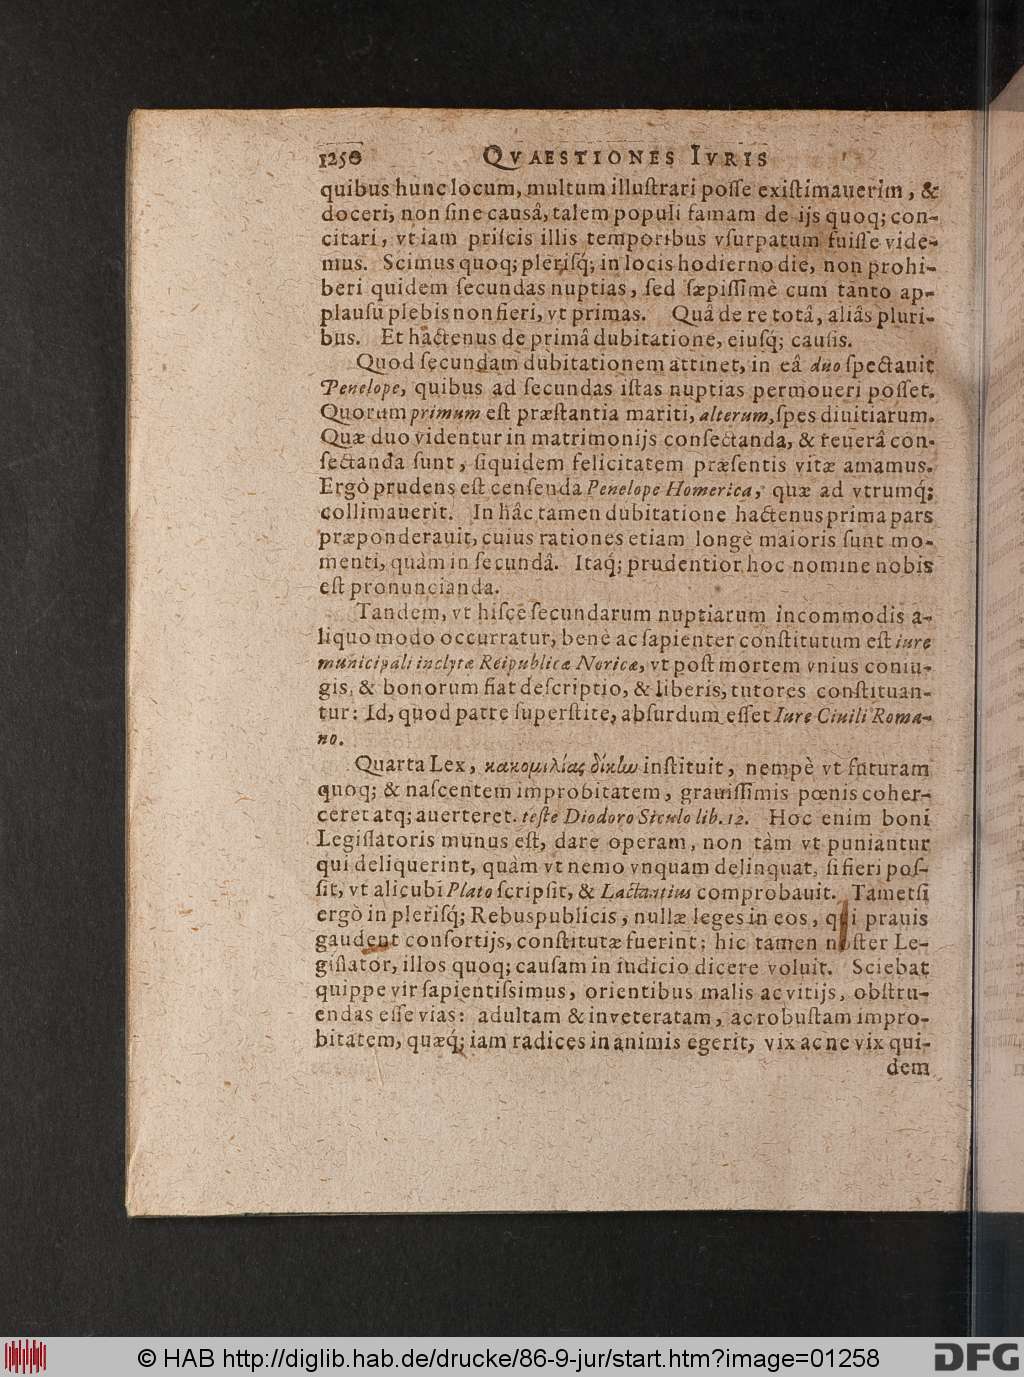 1250 QVAESTIONES IVRIS
quibus hunc locum, multum illuſtrari poſſe exiſtimauerim, &
doceri, non ſine causâ, talem populi famam de ijs quoq; con-
citari, vt iam priſcis illis temporibus vſurpatum fuiſſe vide-
mus. Scimus quoq; pleriſq́; in locis hodierno die, non prohi-
beri quidem ſecundas nuptias, ſed ſæpiſſimè cum tanto ap-
plauſu plebis non fieri, vt primas. Quâ de re totâ, aliâs pluri-
bus. Et hactenus de primâ dubitatione, eiuſq́; cauſis.
Quod ſecundam dubitationem attinet, in eâ duo ſpectauit
Penelope, quibus ad ſecundas iſtas nuptias permoueri poſſet.
Quorum primum eſt præſtantia mariti, alterum, ſpes diuitiarum.
Quæ duo videntur in matrimonijs conſectanda, & reuerâ con-
ſectanda ſunt, ſiquidem felicitatem præſentis vitæ amamus.
Ergò prudens eſt cenſenda Penelope Homerica, quæ ad vtrumq́;
collimauerit. In hâc tamen dubitatione hactenus prima pars
præponderauit, cuius rationes etiam longè maioris ſunt mo-
menti, quàm in ſecundâ. Itaq́; prudentior hoc nomine nobis
eſt pronuncianda.
Tandem, vt hiſce ſecundarum nuptiarum incommodis a-
liquo modo occurratur, benè ac ſapienter conſtitutum eſt iure
municipali inclytæ Reipublicæ Noricæ, vt poſt mortem vnius coniu-
gis, & bonorum fiat deſcriptio, & liberis, tutores conſtituan-
tur: Id, quod patre ſuperſtite, abſurdum eſſet Iure Ciuili Roma-
no.
Quarta Lex, κακομιλίας δίκἰω inſtituit, nempè vt futuram
quoq; & naſcentem improbitatem, grauiſſimis pœnis coher-
ceret atq; auerteret. teſte Diodoro Siculo lib. 12. Hoc enim boni
Legiſlatoris munus eſt, dare operam, non tàm vt puniantur
qui deliquerint, quàm vt nemo vnquam delinquat, ſi fieri poſ-
ſit, vt alicubi Plato ſcripſit, & Lactantius comprobauit. Tametſi
ergò in pleriſq́; Rebuspublicis, nullæ leges in eos, qui prauis
gaudent conſortijs, conſtitutæ fuerint; hic tamen noſter Le-
giſlator, illos quoq; cauſam in iudicio dicere voluit. Sciebat
quippe vir ſapientiſsimus, orientibus malis ac vitijs, obſtru-
endas eſſe vias: adultam & inveteratam, ac robuſtam impro-
bitatem, quæq́; iam radices in animis egerit, vix ac ne vix qui-
dem
© HAB http://diglib.hab.de/drucke/86-9-jur/start.htm?image=01258
DFG